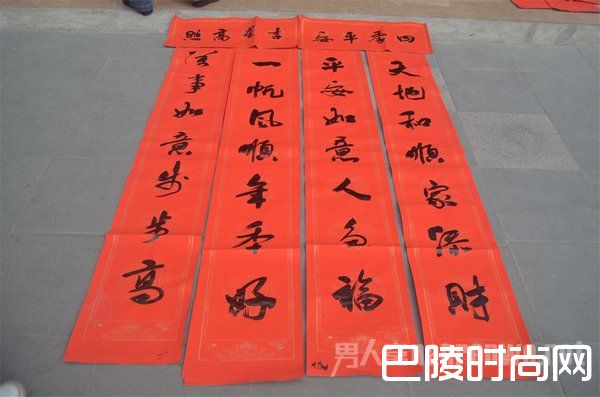 四季平安
吉星高照
天地和順家添財
平安如意人多福
一帆风順年年好
萬事如意步步高
男人
巴陵时尚网